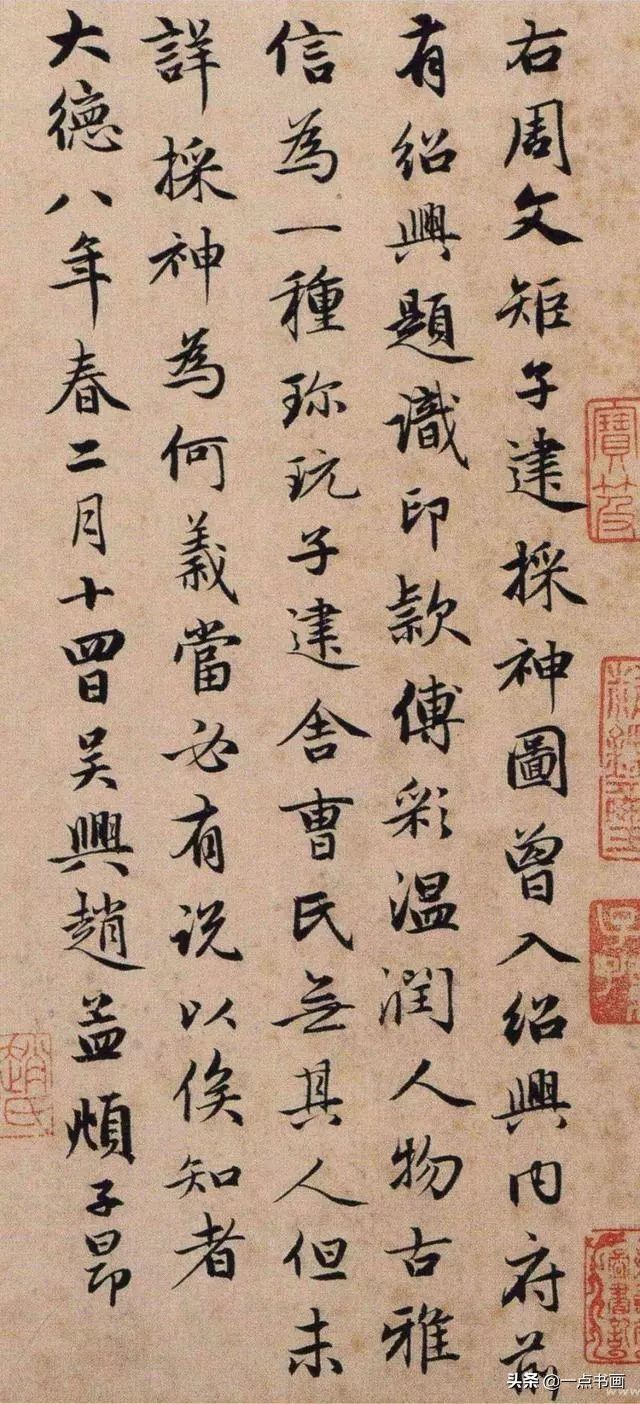 右周文矩子建採神圖曾入紹興内府前
有紹興題識印款傅彩温潤人物古雅
信為一種珎玩子建舍曹氏無其人但未
詳採神為何義當必有説以俟知者
大德八年春二月十四日吴興趙孟頫子昂
趙氏
头条 @一点书画